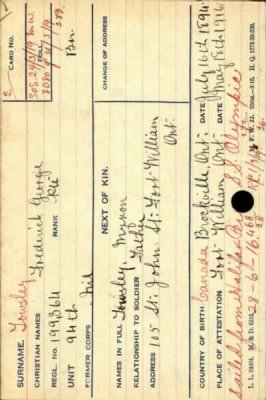 SURNAME. Towsley
CHRISTIAN NAMES Frederick George
REGL. NO. 199364 RANK Pte
UNIT 94th Bn
FORMER CORPS Nil
CARD NO.
2
FOLL.
NEXT OF KIN.
NAMES IN FULL Towsley, Myron
RELATIONSHIP TO SOLDIER Father
ADDRESS 105 St. John St. Fort William
Ont.
CHANGE OF ADDRESS
COUNTRY OF BIRTH Canada Brockville, Ont. DATE July 16th 1894
PLACE OF ATTESTATION Fort William, Ont. DATE May 18th 1916
Sailed from Halifax Per S.S. Olympic
28-6-16